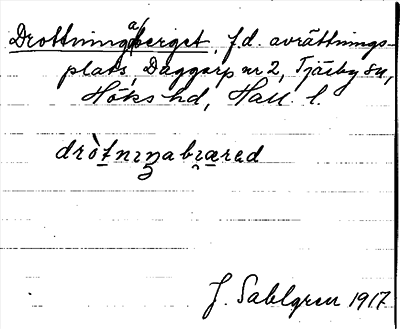 Drottningaberget, f.d. avrättnings-
plats, Daggarp nr 2, Tjärby sn,
Höks hd, Hall. l.
dròtnıŋabıæred
J. Sahlgren 1917